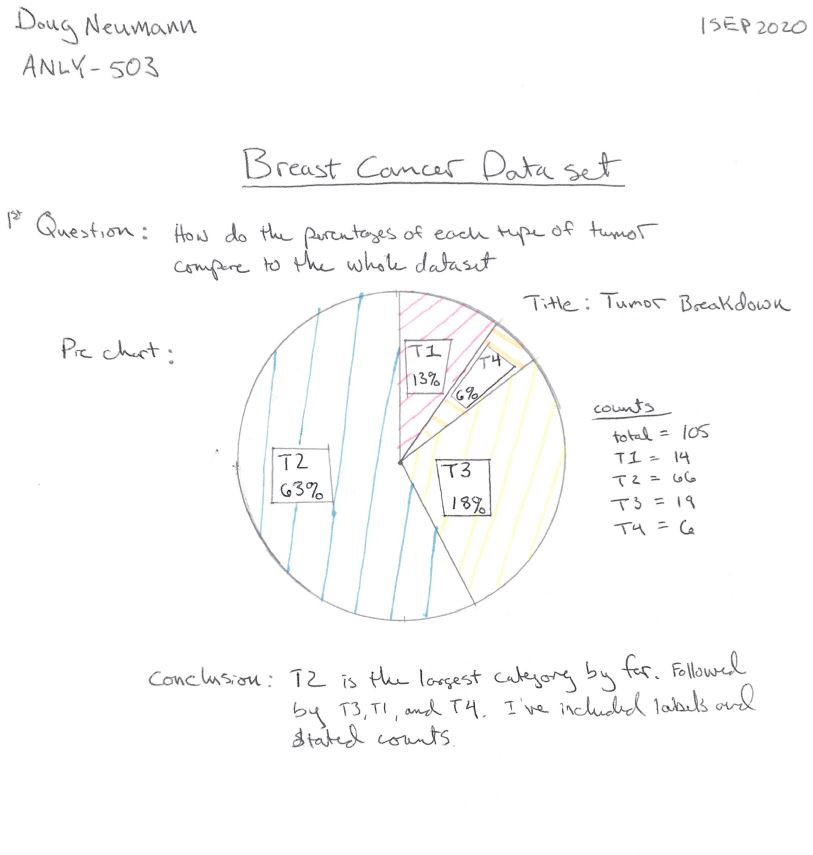 Doug Neumann
1SEP2020
ANLY-503
Breast Cancer Dataset
1st Question: How do the percentages of each type of tumor
compare to the whole dataset
Title: Tumor Breakdown
Pie chart:
T1
13%
T4
6%
T2
63%
T3
18%
counts
total = 105
T1 = 14
T2 = 66
T3 = 19
T4 = 6
Conclusion: T2 is the largest category by far. Followed
by T3, T1, and T4. I've included labels and
stated counts.